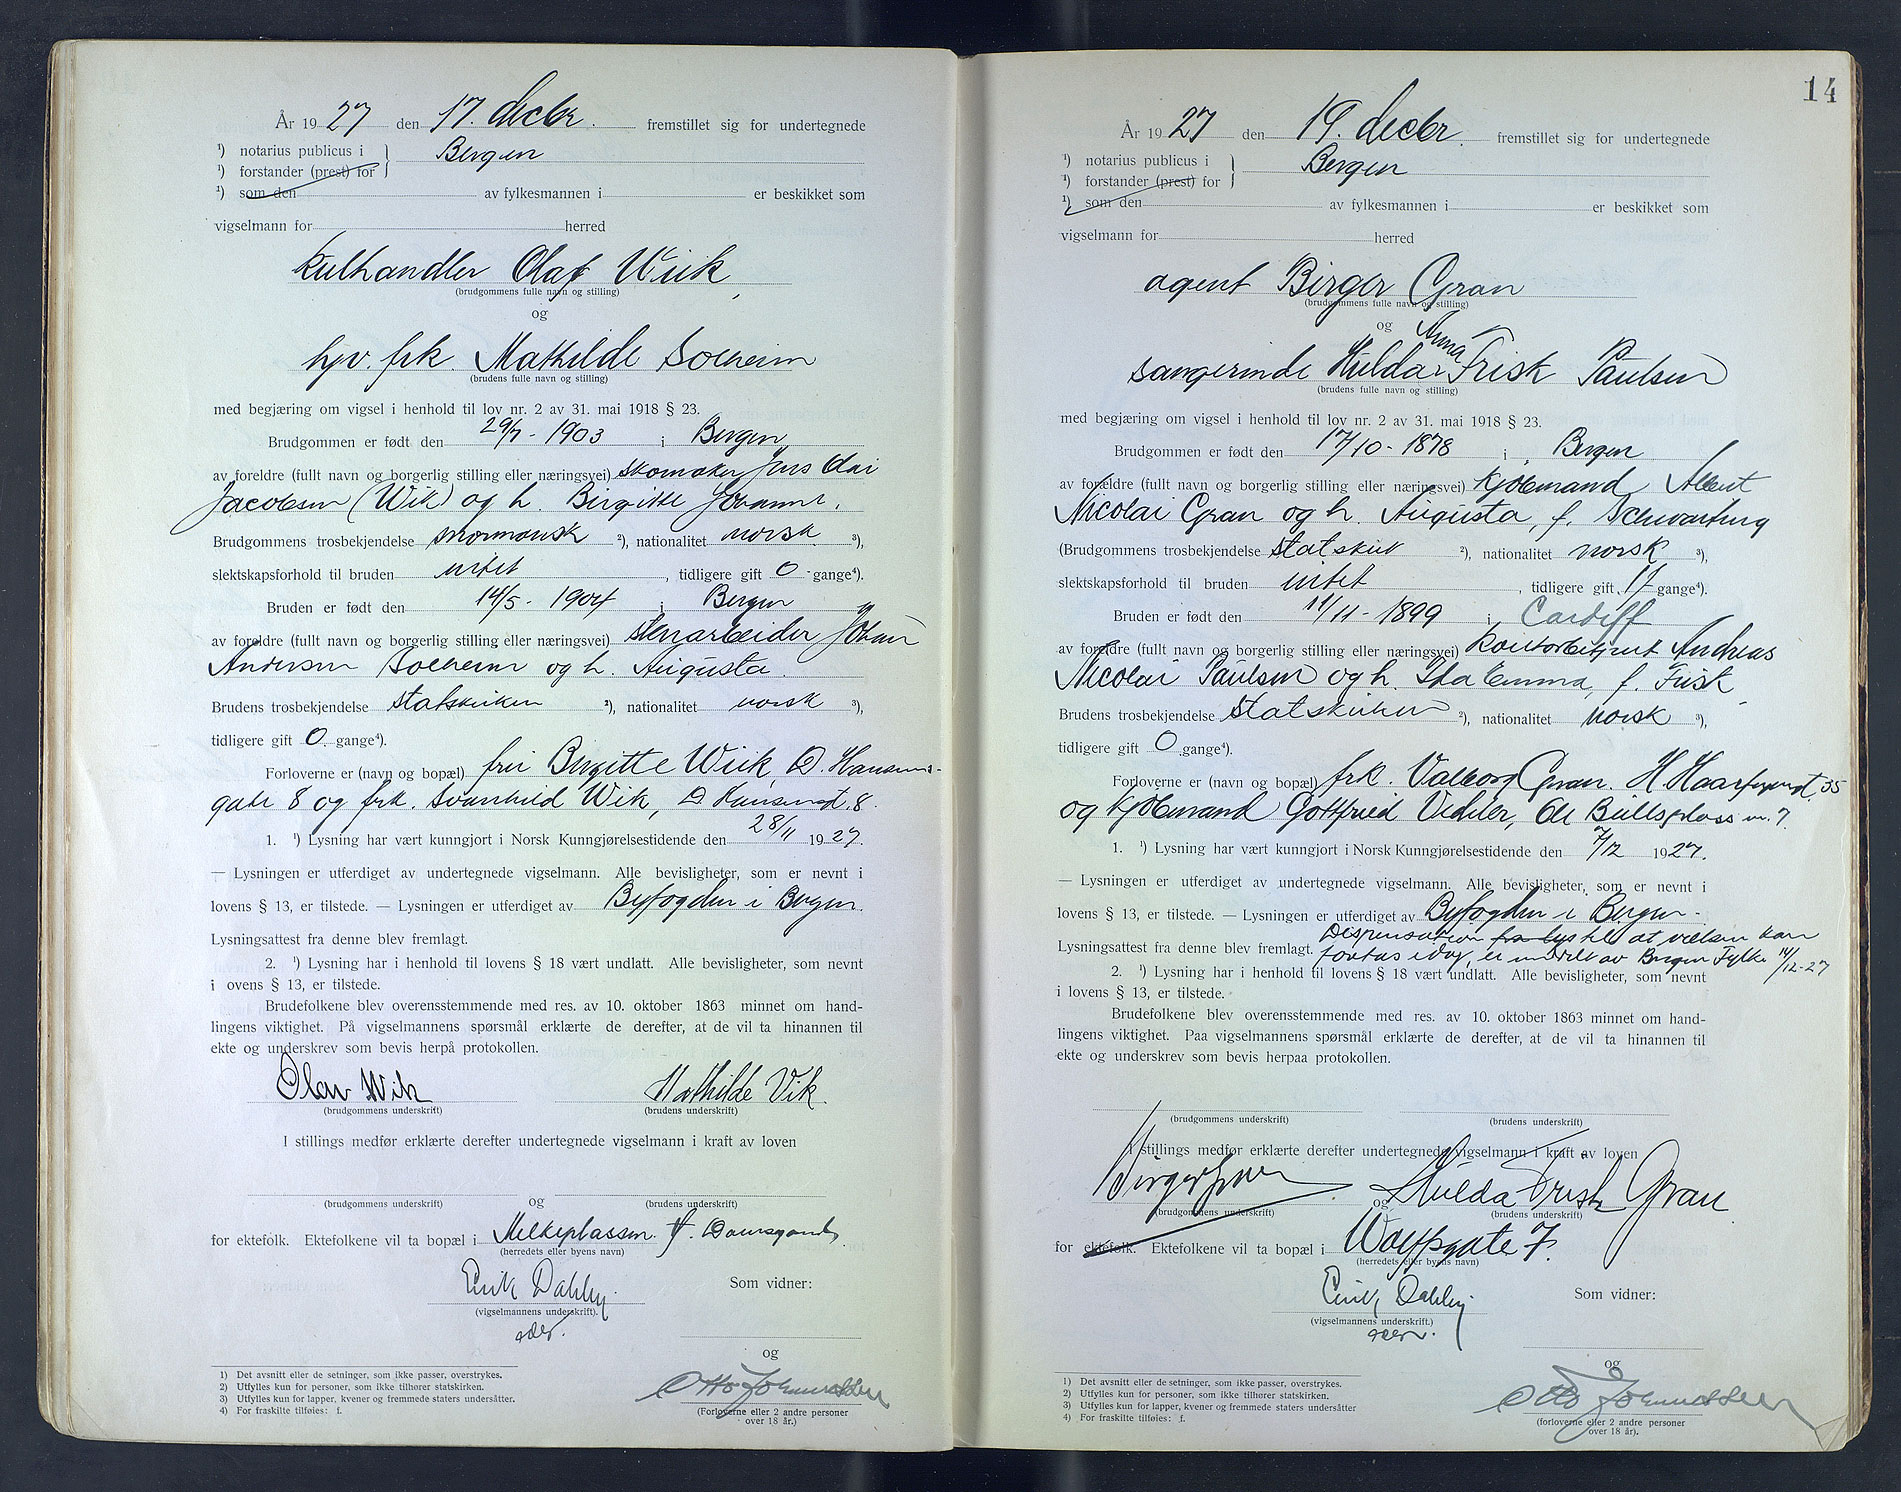 År 1927 den 17. decbr. fremstillet sig for undertegnede
1) notarius publicus i } Bergen
1) forstander (prest) for
1) som den av fylkesmannen i er beskikket som
vigselmann for herred
Kulhandler Olaf Wiik
(brudgommens fulle navn og stilling)
og
hjv. frk. Mathilde Solheim
(brudens fulle navn og stilling)
med begjæring om vigsel i henhold til lov nr. 2 av 31. mai 1918 § 23.
Brudgommen er født den 29/7 - 1903 i Bergen
av foreldre (fullt navn og borgerlig stilling eller næringsvei) skomaker Jens Olai
Jacobsen (Wik) og h. Birgitte Johanne.
Brudgommens trosbekjendelse mormonsk 2), nationalitet norsk 3),
slektskapsforhold til bruden intet, tidligere gift 0 gange4).
Bruden er født den 14/5 - 1904 i Bergen
av foreldre (fullt navn og borgerlig stilling eller næringsvei) stenarbeider Johan
Andersen Solheim og h. Augusta.
Brudens trosbekjendelse statskirken 2), nationalitet norsk 3),
tidligere gift 0 gange4).
Forloverne er (navn og bopæl) fru Birgitte Wiik, D. Hansens-
gate 8 og frk. Svanhild Wik, D Hansensgt. 8.
1. 1) Lysning har vært kunngjort i Norsk Kunngjørelsestidende den 28/11 1927.
— Lysningen er utferdiget av undertegnede vigselmann. Alle bevisligheter, som er nevnt i
lovens § 13, er tilstede. — Lysningen er utferdiget av Byfogden i Bergen.
Lysningsattest fra denne blev fremlagt.
2. 1) Lysning har i henhold til lovens § 18 vært undlatt. Alle bevisligheter, som nevnt
i ovens § 13, er tilstede.
Brudefolkene blev overensstemmende med res. av 10. oktober 1863 minnet om hand-
lingens viktighet. På vigselmannens spørsmål erklærte de derefter, at de vil ta hinannen til
ekte og underskrev som bevis herpå protokollen.
Olav Wik Mathilde Vik.
(brudgommens underskrift) (brudens underskrift)
I stillings medfør erklærte derefter undertegnede vigselmann i kraft av loven
og
(brudgommens underskrift) (brudens underskrift)
for ektefolk. Ektefolkene vil ta bopæl i Melkeplassen. Damsgård.
(herredets eller byens navn)
Erik Dahley Som vidner:
(vigselmannens underskrift).
og
Otto Johannessen
(Forloverne eller 2 andre personer
over 18 år.)
1) Det avsnitt eller de setninger, som ikke passer, overstrykes.
2) Utfylles kun for personer, som ikke tilhører statskirken.
3) Utfylles kun for lapper, kvener og fremmede staters undersåtter.
4) For fraskilte tilføies: f.
14
År 1927 den 19. decbr. fremstillet sig for undertegnede
1) notarius publicus i } Bergen
1) forstander (prest) for
1) som den av fylkesmannen i er beskikket som
vigselmann for herred
agent Birger Gran
(brudgommens fulle navn og stilling)
og Anna
sangerinde Hulda Frisk Paulsen
(brudens fulle navn og stilling)
med begjæring om vigsel i henhold til lov nr. 2 av 31. mai 1918 § 23.
Brudgommen er født den 17/10 - 1878 i Bergen
av foreldre (fullt navn og borgerlig stilling eller næringsvei) kjøbmand Albert
Nicolai Gran og h. Augusta, f. Schwartung
(Brudgommens trosbekjendelse statskirk 2), nationalitet norsk 3),
slektskapsforhold til bruden intet, tidligere gift 1f gange4).
Bruden er født den 11/11 - 1899 i Cardiff
av foreldre (fullt navn og borgerlig stilling eller næringsvei) kontorbetjent Andreas
Nicolai Paulsen og h. Ida Emma, f. Frisk
Brudens trosbekjendelse statskirken 2), nationalitet norsk 3),
tidligere gift 0 gange4).
Forloverne er (navn og bopæl) frk. Valborg Gran. H Haarfagresgt. 35
og kjøbmand Gottfried Vedeler, Ole Bullsplass nr. 7.
1. 1) Lysning har vært kunngjort i Norsk Kunngjørelsestidende den 7/12 1927.
— Lysningen er utferdiget av undertegnede vigselmann. Alle bevisligheter, som er nevnt i
lovens § 13, er tilstede. — Lysningen er utferdiget av Byfogden i Bergen.
Dispensation fra lys til at vielsen kan
Lysningsattest fra denne blev fremlagt. foretas idag, er meddelt av Bergen Fylke 14/12-27
2. 1) Lysning har i henhold til lovens § 18 vært undlatt. Alle bevisligheter, som nevnt
i lovens § 13, er tilstede.
Brudefolkene blev overensstemmende med res. av 10. oktober 1863 minnet om hand-
lingens viktighet. Paa vigselmannens spørsmål erklærte de derefter, at de vil ta hinannen til
ekte og underskrev som bevis herpaa protokollen.
(brudgommens underskrift) (brudens underskrift)
I stillings medfør erklærte derefter undertegnede vigselmann i kraft av loven
Birger Gran og Hulda Frisk Gran
(brudgommens underskrift) (brudens underskrift)
for ektefolk. Ektefolkene vil ta bopæl i Wolffsgate 7.
(herredets eller byens navn)
Erik Dahley Som vidner:
(vigselmannens underskrift.)
og
Otto Johannessen
(forloverne eller 2 andre personer
over 18 år).
1) Det avsnitt eller de setninger, som ikke passer, overstrykes.
2) Utfylles kun for personer, som ikke tilhører statskirken.
3) Utfylles kun for lapper, kvener og fremmede staters undersåtter
4) For fraskilte tilføies: f.